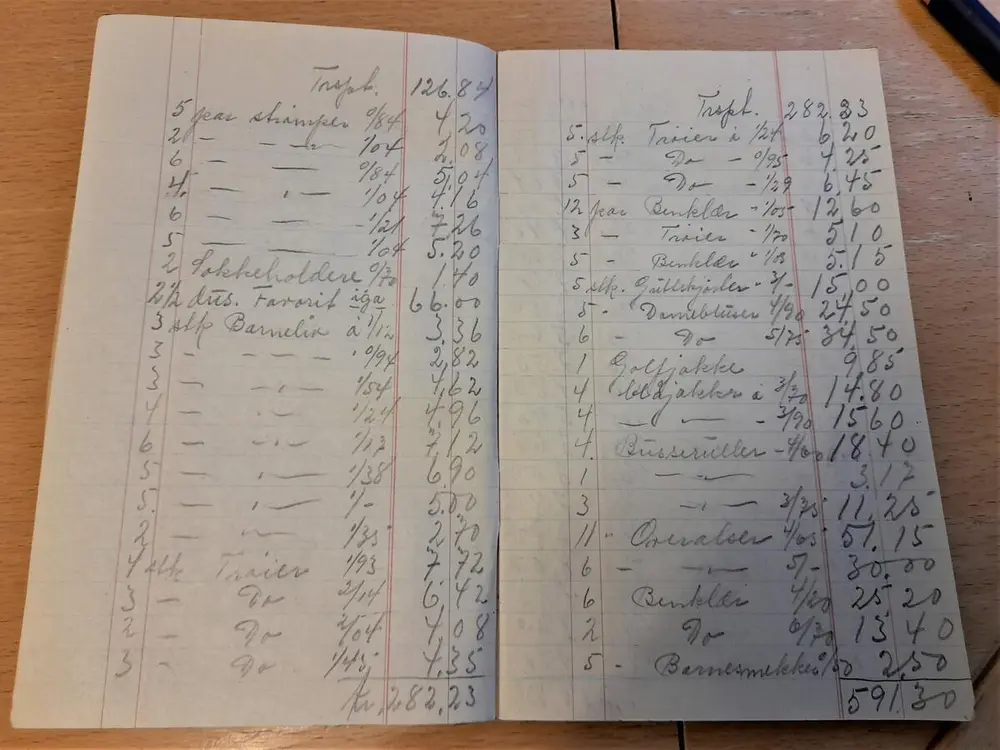 Trspt. 126.84
5 par strømper 0/84 4,20
2 - - - 1/04 2.08
6 - 0/84 5,04
4 - " - 1/04 4.16
6 - - 1/21 7.26
5 - 1/04 5.20
2 Sokkeholdere 0/70 1.40
2 1/2 dus. Favorit iga 66.00
3 stk Barneliv à 1/12 3.36
3 - - - - 0/94 2,82
3 - - " - 1/54 4,62
4 - - " - 1/24 4.96
6 - - " - 7,12
5 - " - 1/38 6.90
5. - " - 1/- 5.00
2. - - 1/35 2.70
4 stk Trøier 1/93 7.72
3 - Do 2/14 6,42
2 - Do 2/04 4,08
3 - Do 1/45 4.35
kr. 282,23
Trspt. 282.23
5. stk. Trøier à 1/24 6 20
5 - Do - 0/95 4,25
5 - Do - 1/29 6.45
12 par Benklær - 1/05- 12,60
3 - Trøier - 1/70 5,10
5 - Benklær " 1/03 5.15
5 stk. - 3/- 15,00
5 - Damebluser 4/90 24,50
6 - Do 5/75 34,50
1 Golfjakke 9,85
4 à 3/70 14.80
4 - - - 3/90 15,60
4. Busseruller - 4/60 18.40
1 - 3.17
3 - " - 3/75 11,25
11 - Overalser 4/65 51.15
6 - - " - 5/- 30.00
6 Benklær 4/20 25,20
2 Do 6/70 13,40
5 - Barnesmekker 0/50 2,50
591.30